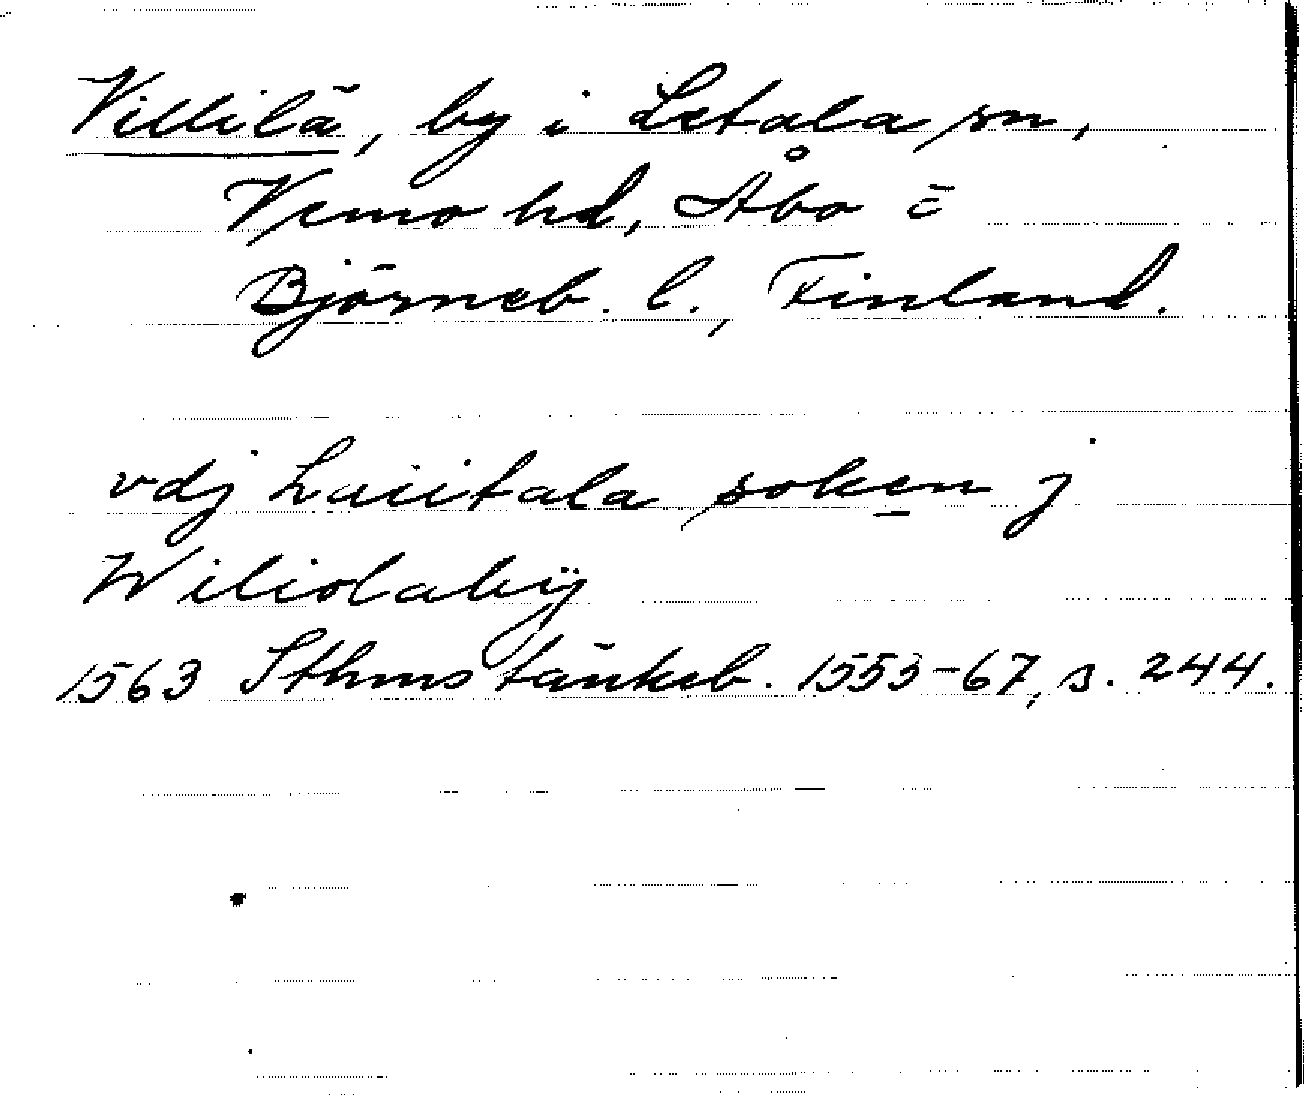 Villilä, by i Letala sn,
Vemo hd, Åbo o
Björneb. l., Finland.
vdj Laiitala soken j
Wiliolabÿ
1563 Sthms tänkeb. 1553-67, s. 244.